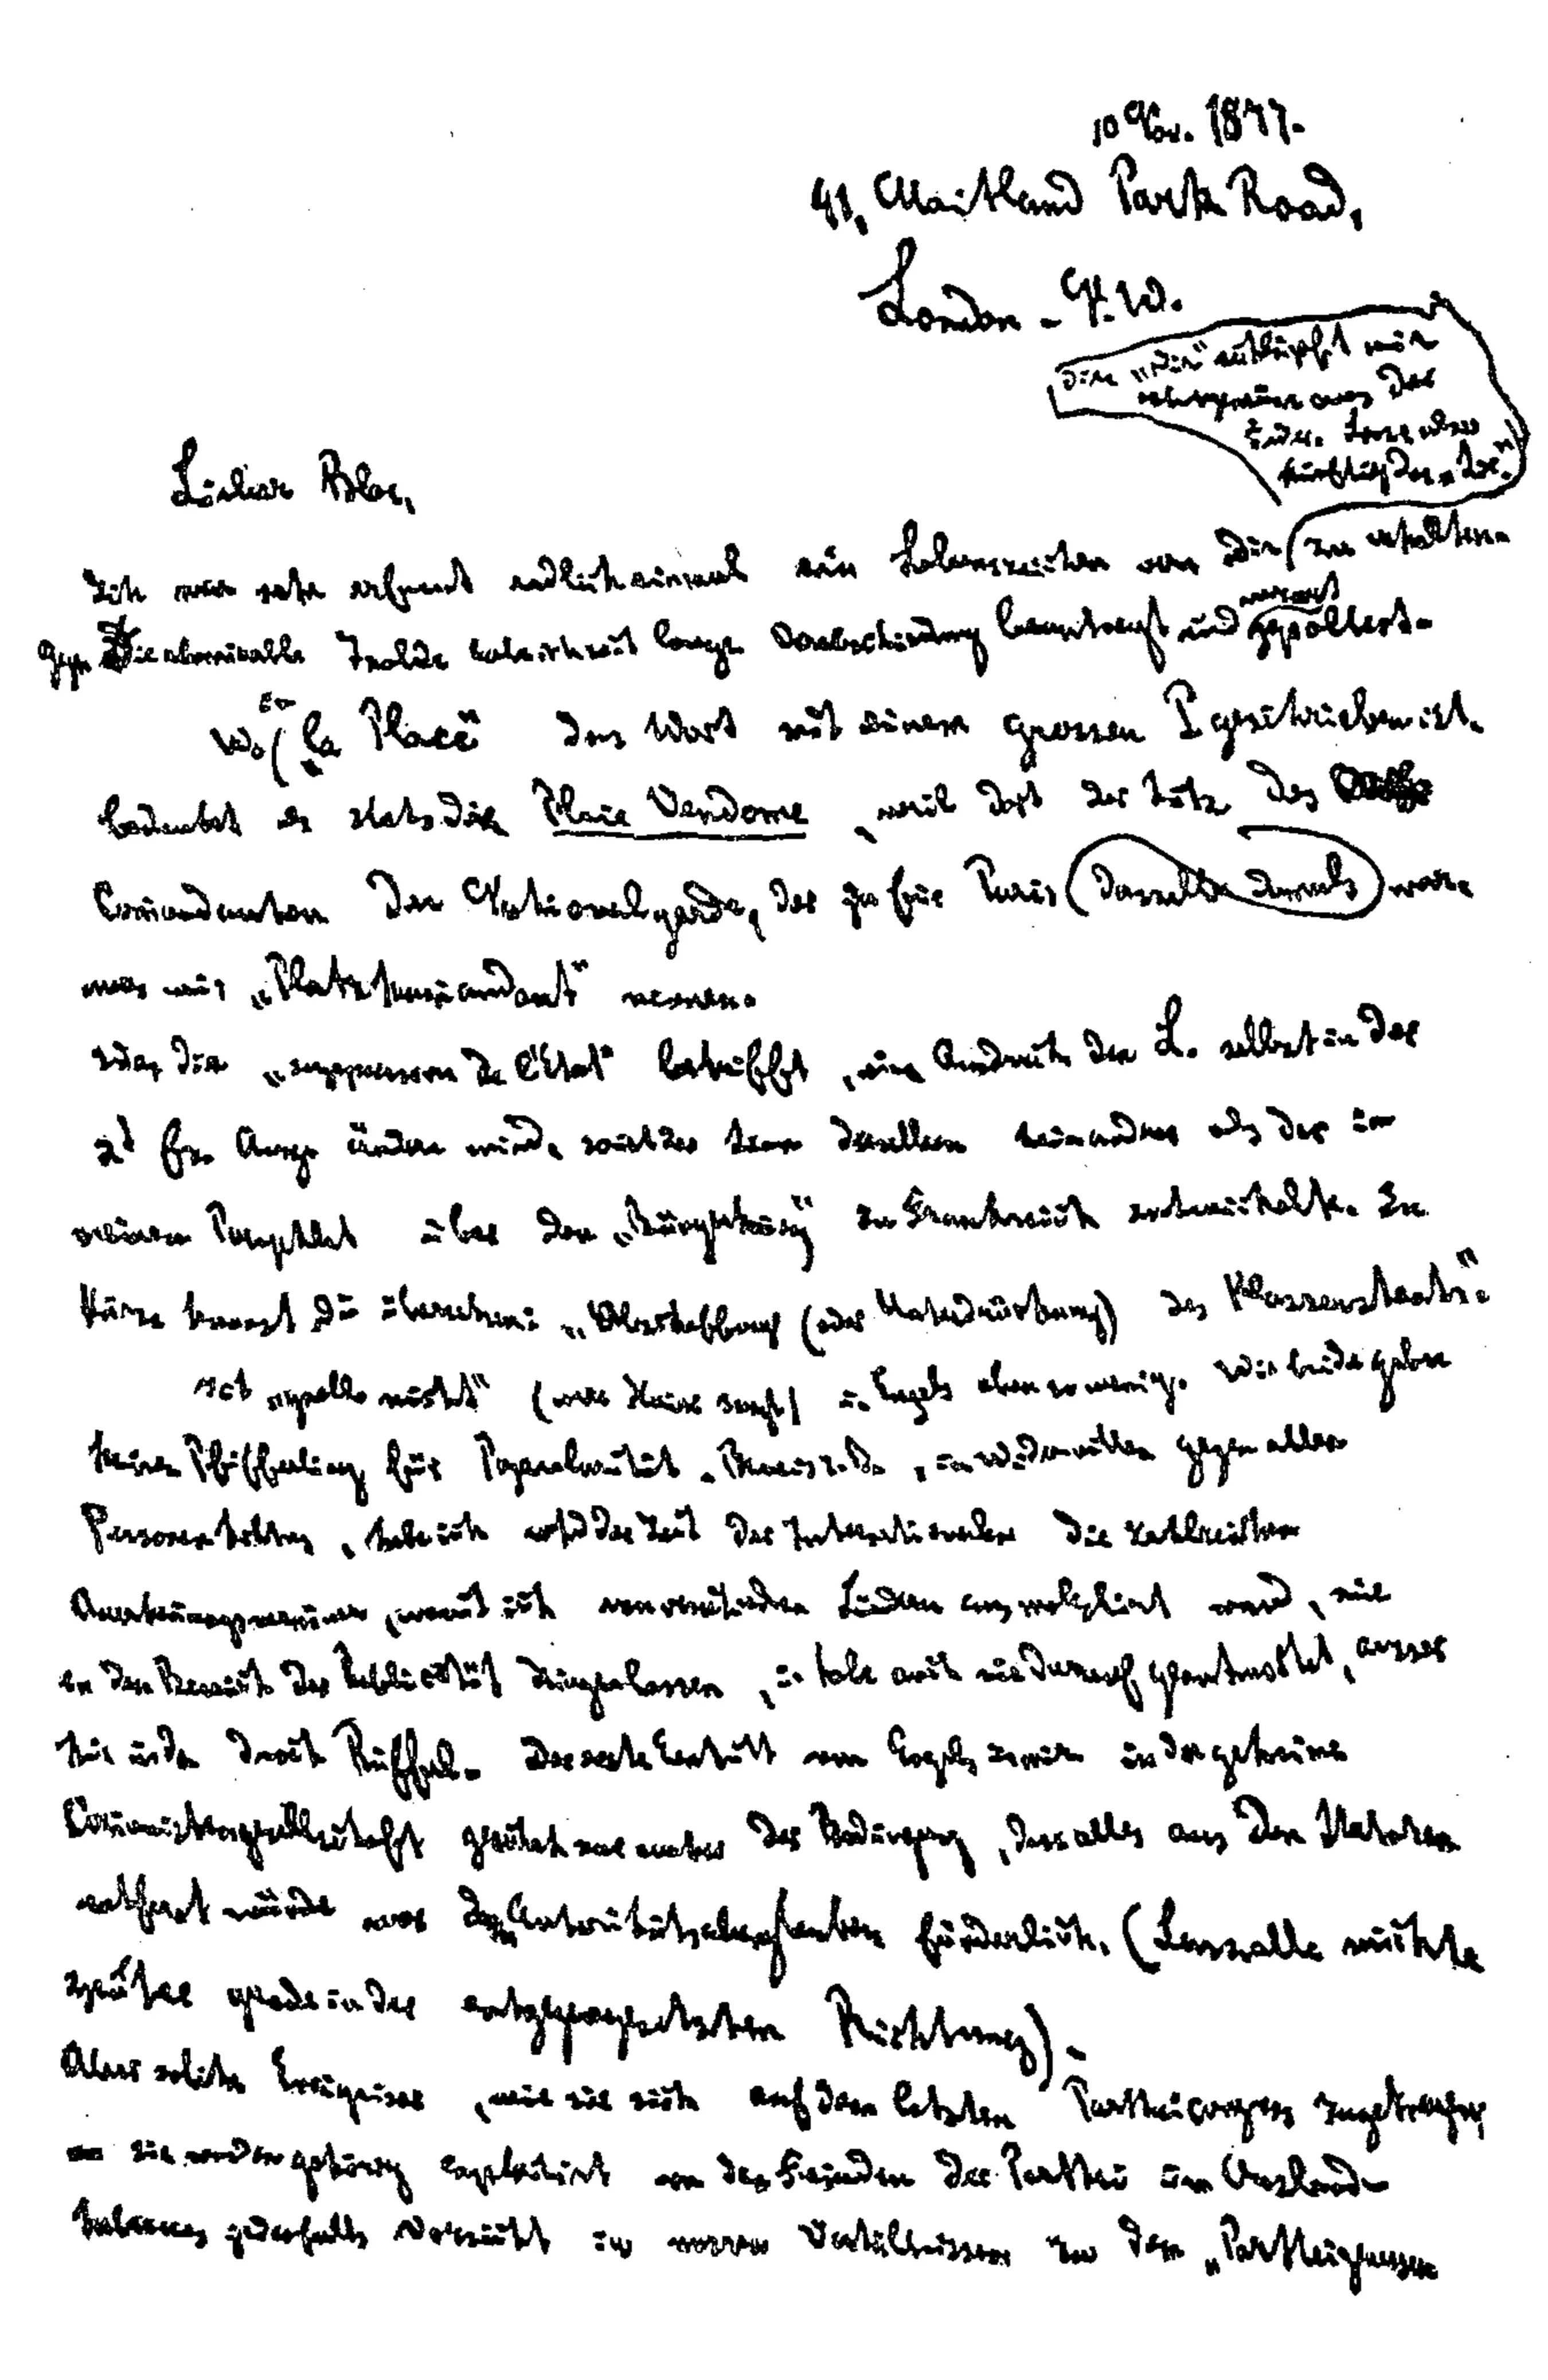 10 Nov. 1877.
41, Maitland Park Road,
London. N.W.
Dies „Dir" entschlüpft mir
aus der
Feder. Lasse also
künftig das „Sie".
Lieber Blos,
Ich war sehr erfreut endlich einmal ein Lebenszeichen von Dir (zu erhalten.
Gegen Die Isolde habe ich seit lange und gepoltert.
Wo „en la Place" das Wort mit einem grossen P geschrieben ist,
bedeutet es stets die Place Vendome, weil dort der Sitz des
Commandanten der Nationalgarde, der ja für Paris (dasselbe damals) war,
was wir „Platzkommandant" nennen.
Was die „suppression de l'État" betrifft, ein Ausdruck den L. selbst in der
2t fz. Ausg. ändern wird, so ist der Sinn desselben kein andrer als der in
meinem Pamphlet über den „Bürgerkrieg" in Frankreich entwickelte. In
Kürze kannst Du übersetzen: „Abschaffung (oder Unterdrückung) des Klassenstaats".
Ich „grolle nicht" (wie Heine sagt) u. Engels ebensowenig. Wir beide geben
keinen Pfifferling für Popularität. Beweis z.B., im Widerwillen gegen allen
Personenkultus, habe ich während der Zeit der Internationalen die zahlreichen
Anerkennungsmanöver, womit ich von verschiednen Ländern aus molestirt ward, nie
in den Bereich der Publicität dringen lassen, u. habe auch nie darauf geantwortet, ausser
hie u. da durch Rüffel. Der erste Eintritt von Engels u. mir in die geheime
Communistengesellschaft geschah nur unter der Bedingung, dass alles aus den Statuten
entfernt würde was dem Autoritätsaberglauben förderlich. (Lassalle wirkte
später grade in der entgegengesetzten Richtung).
Aber solche Ereignisse, wie sie sich auf dem letzten Parteicongress zugetragen
sie werden gehörig exploitirt von den Feinden der Partei im Ausland
haben uns jedenfalls Vorsicht in unsren Verhältnissen zu den „Parteigenossen